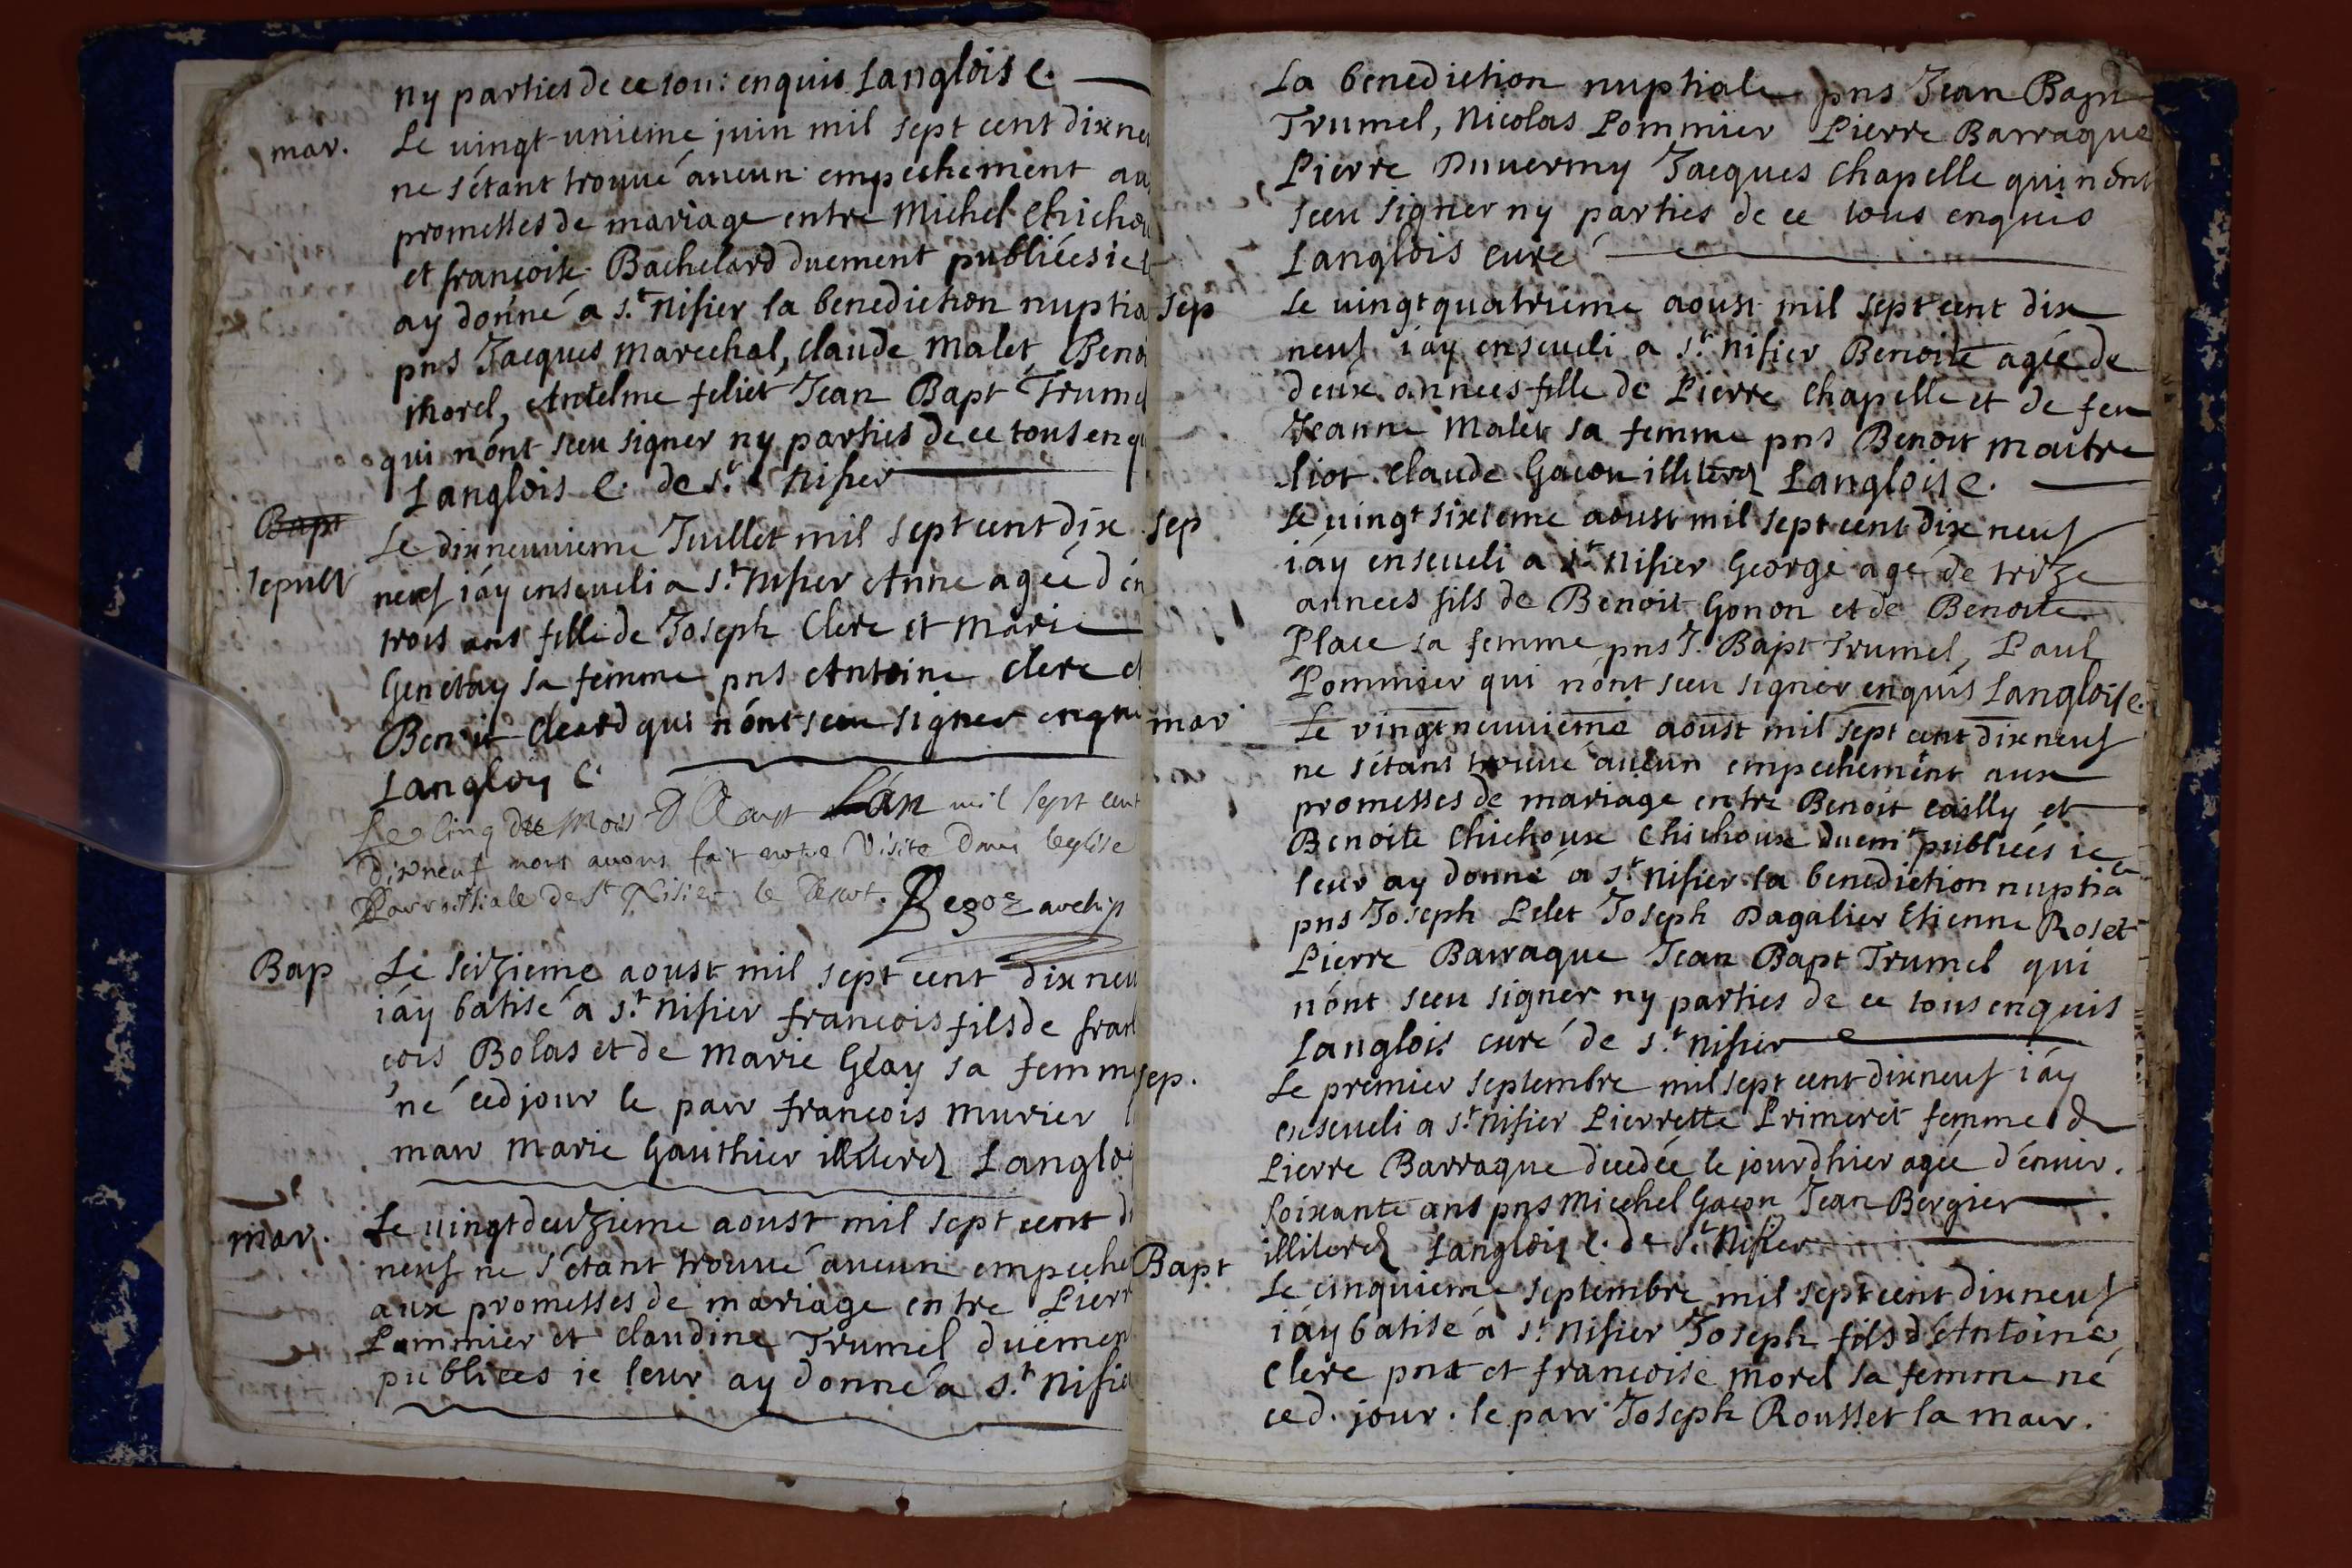 ny parties de ce tou: enquis Langlois c.
mar. Le vingt-unieme juin mil sept cent dixneu
ne s'étant trouvé aucun empechement au
promesses de mariage entre Michel Chichou
et françoise Bachelard duement publiées ie l
ay donné a s.t Nisier la benediction nuptia
pns Jacques Marechal, Claude Malet, Beno
Morel, Antelme feliet Jean Bapt Trumel
qui n'ont sceu signer ny parties de ce tous enqu
Langlois C. de s.t Nisier
Bapt
sepult
Le dixneuvieme Juillet mil sept cent dix
neuf i'ay enseveli a s.t Nisier Anne agée d'en
trois ans fille de Joseph Clerc et Marie
Genetay sa femme pns Antoine Clerc et
Benoit Cleard qui n'ont sceu signer enqui
Langlois C.
Le Cinq du Mois D'Aoust Lan mil sept cent
dixneuf nous avons fait notre Visite dans leglise
Parroissiale de St Nisier le desert. Begoz archip
Bap Le seizieme aoust mil sept cent dix neu
i'ay batisé a s.t Nisier francois fils de fran
cois Bolas et de Marie Glay sa femme
né ced jour le parr françois Murier l
marr Marie Gauthier illiterez Langlois
mar. Le vingtdeuzieme aoust mil sept cent di
neuf ne s'étant trouvé aucun empeche
aux promesses de mariage entre Pierr
Pommier et Claudine Trumel düemen
publiees ie leur ay donné a s.t Nisie
La benediction nuptiale pns Jean Bapt
Trumel, Nicolas Pommier Pierre Barraque
Pierre Duvermy Jacques Chapelle qui n'ont
sceu signer ny parties de ce tous enquis
Langlois curé
sep Le vingtquatrieme aoust mil sept cent dix
neuf i'ay enseveli a s.t Nisier Benoite agée de
deux annees fille de Pierre Chapelle et de feu
Jeanne Malet sa femme pns Benoit Maitre
liot Claude Gacon illiterez Langlois c.
sep Le vingt sixieme aoust mil sept cent dix neuf
i'ay enseveli a s.t Nisier George agé de treze
annees fils de Benoit Gonon et de Benoite
Place sa femme pns J. Bapt Trumel, Paul
Pommier qui n'ont sceu signer enquis Langlois c.
mar Le vingtneuvieme aoust mil sept cent dixneuf
ne s'étant trouvé aucun empechement aux
promesses de mariage entre Benoit Cailly et
Benoite Chichoux Chichoux duemt publiées ie
leur ay donné a s.t Nisier la benediction nuptiale
pns Joseph Pelet Joseph Dagalier Etienne Roset
Pierre Barraque Jean Bapt Trumel qui
n'ont sceu signer ny parties de ce tous enquis
Langlois curé de s.t Nisier
sep. Le premier septembre mil sept cent dixneuf i'ay
enseveli a s.t Nisier Pierrette Primeret femme de
Pierre Barraque decedée le jourdhier agée d'envir.
soixante ans pns Micchel Gacon Jean Bergier
illiterez Langlois c. de s.t Nisier
Bapt Le cinquieme septembre mil sept cent dixneuf
i'ay batisé a s.t Nisier Joseph fils d'Antoine
Clerc pnt et francoise Morel sa femme né
ced. jour. le parr Joseph Rousset la marr.